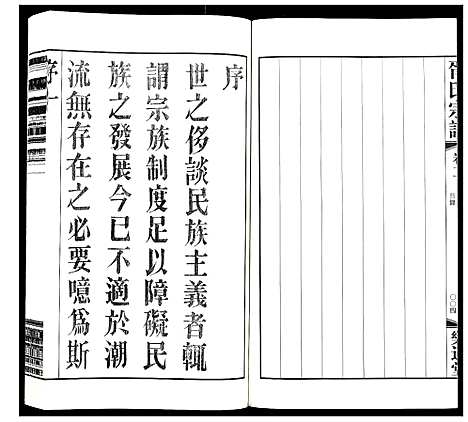 宗譜
〇〇四
序
世之侈談民族主義者輒
謂宗族制度足以障礙民
族之發展今已不適於潮
流無存在之必要噫爲斯
序一